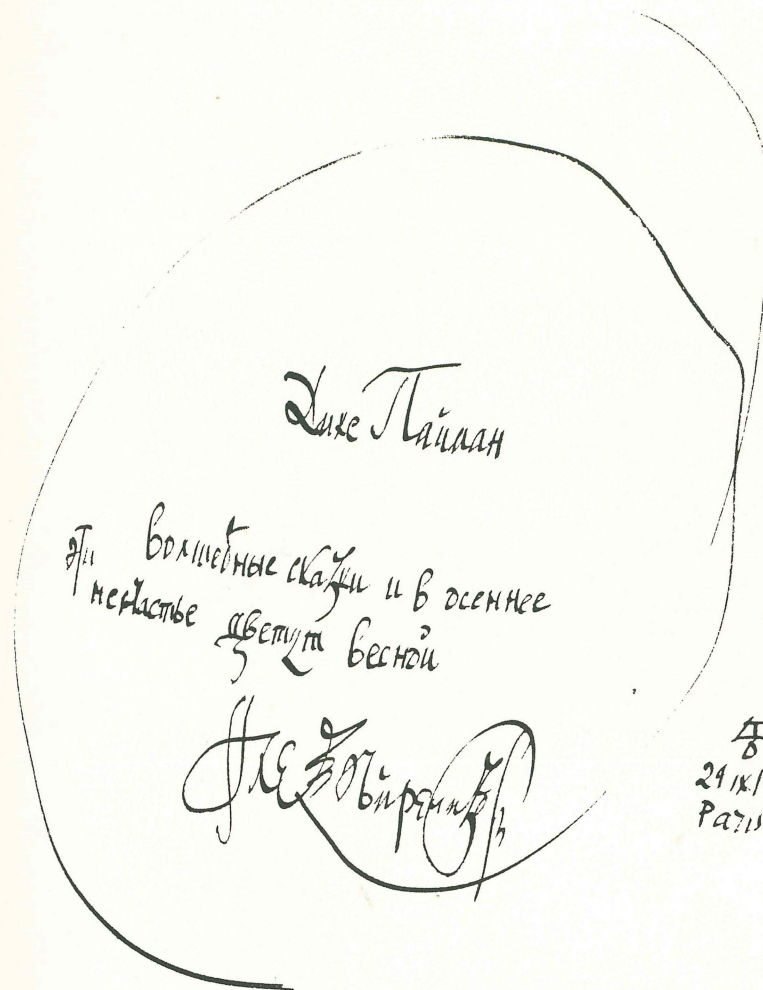 эти волшебные сказки и в осеннее
ненастье цветут весной
Алексѣй Ремизов
Paris